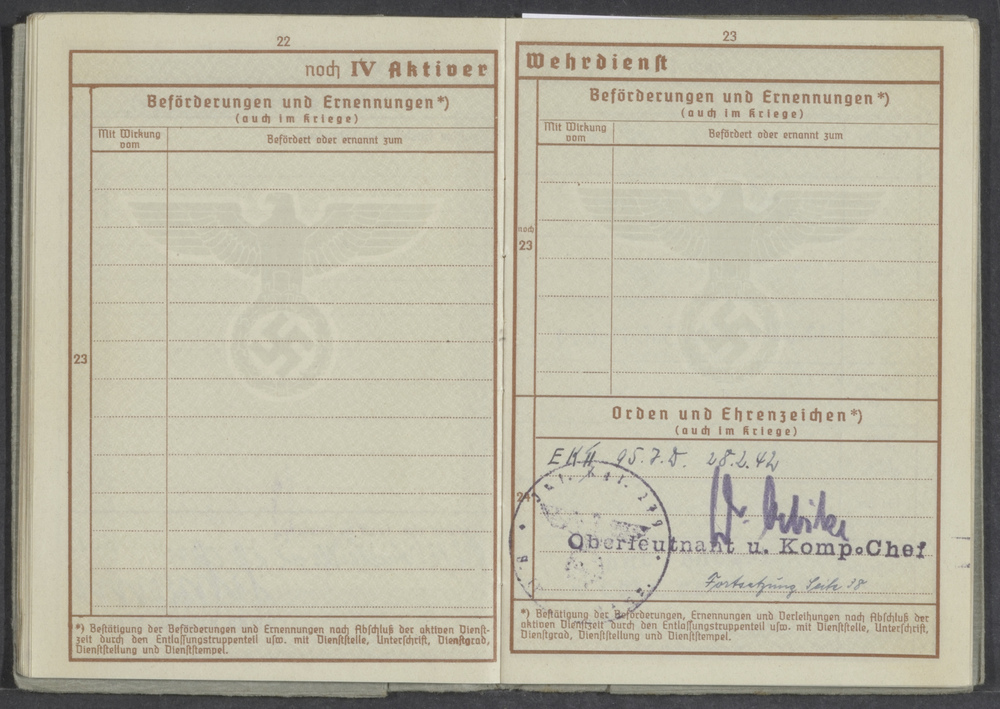 22
noch IV Aktiver
Beförderungen und Ernennungen*)
(auch im Kriege)
Mit Wirkung vom
Befördert oder ernannt zum
23
*) Bestätigung der Beförderungen und Ernennungen nach Abschluß der aktiven Dienst-
zeit durch den Entlassungstruppenteil usw. mit Dienststelle, Unterschrift, Dienstgrad,
Dienststellung und Dienststempel.
23
Wehrdienst
Beförderungen und Ernennungen*)
(auch im Kriege)
Mit Wirkung vom
Befördert oder ernannt zum
noch
23
Orden und Ehrenzeichen*)
(auch im Kriege)
EK II 95. J. D. 28.2.42
24
279
Oberleutnant u. Komp.Chef
Fortsetzung Seite 38
*) Bestätigung der Beförderungen, Ernennungen und Verleihungen nach Abschluß der
aktiven Dienstzeit durch den Entlassungstruppenteil usw. mit Dienststelle, Unterschrift,
Dienstgrad, Dienststellung und Dienststempel.